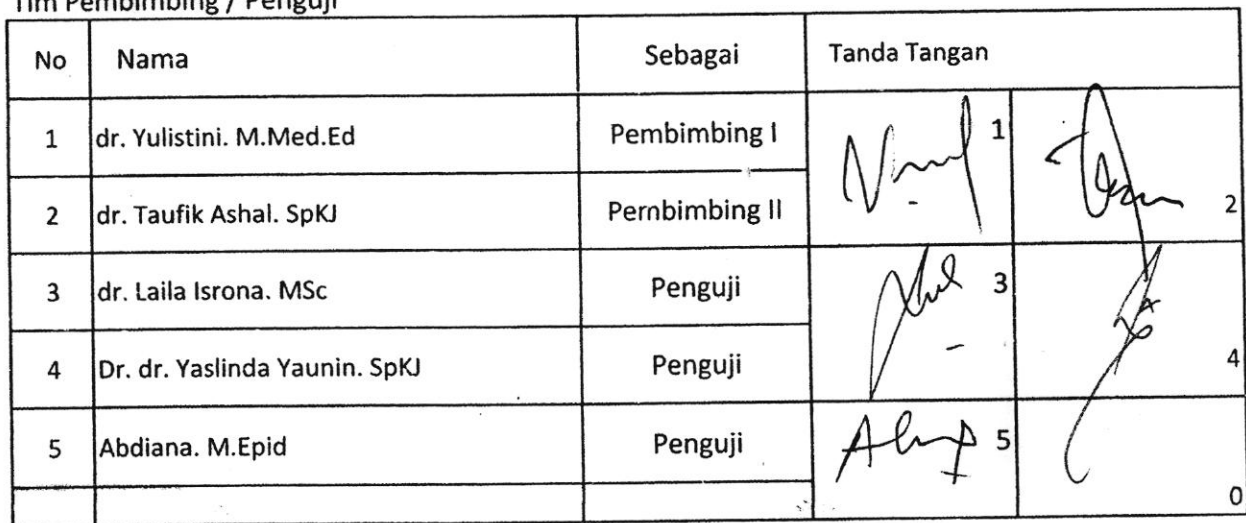 Tim Pembimbing / Penguji
No Nama Sebagai Tanda Tangan
1 dr. Yulistini. M.Med.Ed Pembimbing I 1
2 dr. Taufik Ashal. SpKJ Pernbimbing II 2
3 dr. Laila Isrona. MSc Penguji 3
4 Dr. dr. Yaslinda Yaunin. SpKJ Penguji 4
5 Abdiana. M.Epid Penguji 5
0